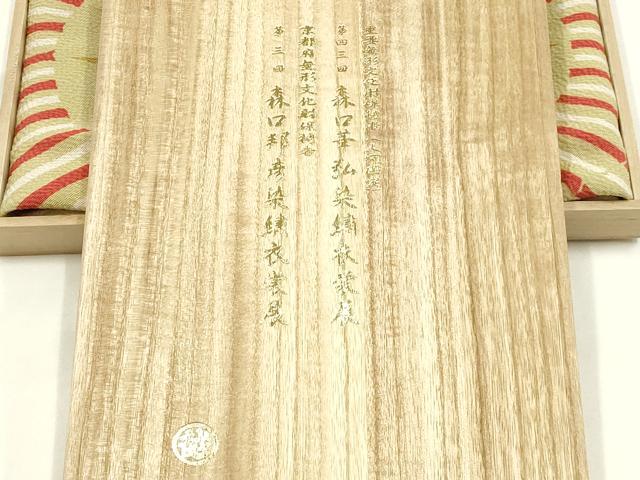 重要無形文化財保持者(人間国宝)
第四三回 森口華弘染繍衣裳展
京都府無形文化財保持者
第三回 森口邦彦染繍衣裳展